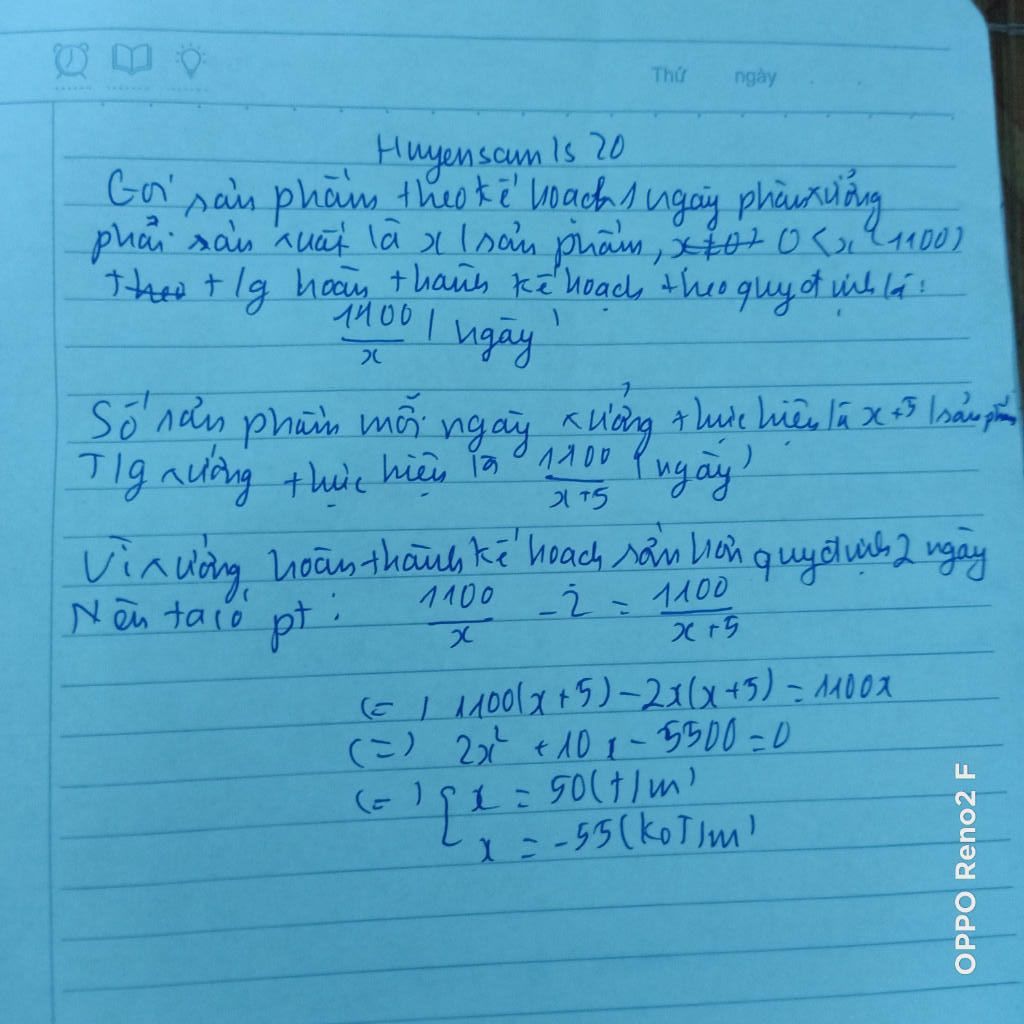 Thứ ngày
Huyensam1s 20
Gọi sản phẩm theo kế hoạch 1 ngày phân xưởng
phải sản xuất là x (sản phẩm, x≠0 0 < x < 1100)
theo t/g hoàn thành kế hoạch theo quy định là:
1100/x (ngày)
Số sản phẩm mỗi ngày xưởng thực hiện là x+5 (sản phẩm
T/g xưởng thực hiện là 1100/x+5 (ngày)
Vì xưởng hoàn thành kế hoạch sớm hơn quy định 2 ngày
Nên ta có pt: 1100/x - 2 = 1100/x+5
(=) 1100(x+5) - 2x(x+5) = 1100x
(=) 2x² + 10x - 5500 = 0
(=) [ x = 50 (t/m)
x = -55 (ko T/m)
OPPO Reno2 F